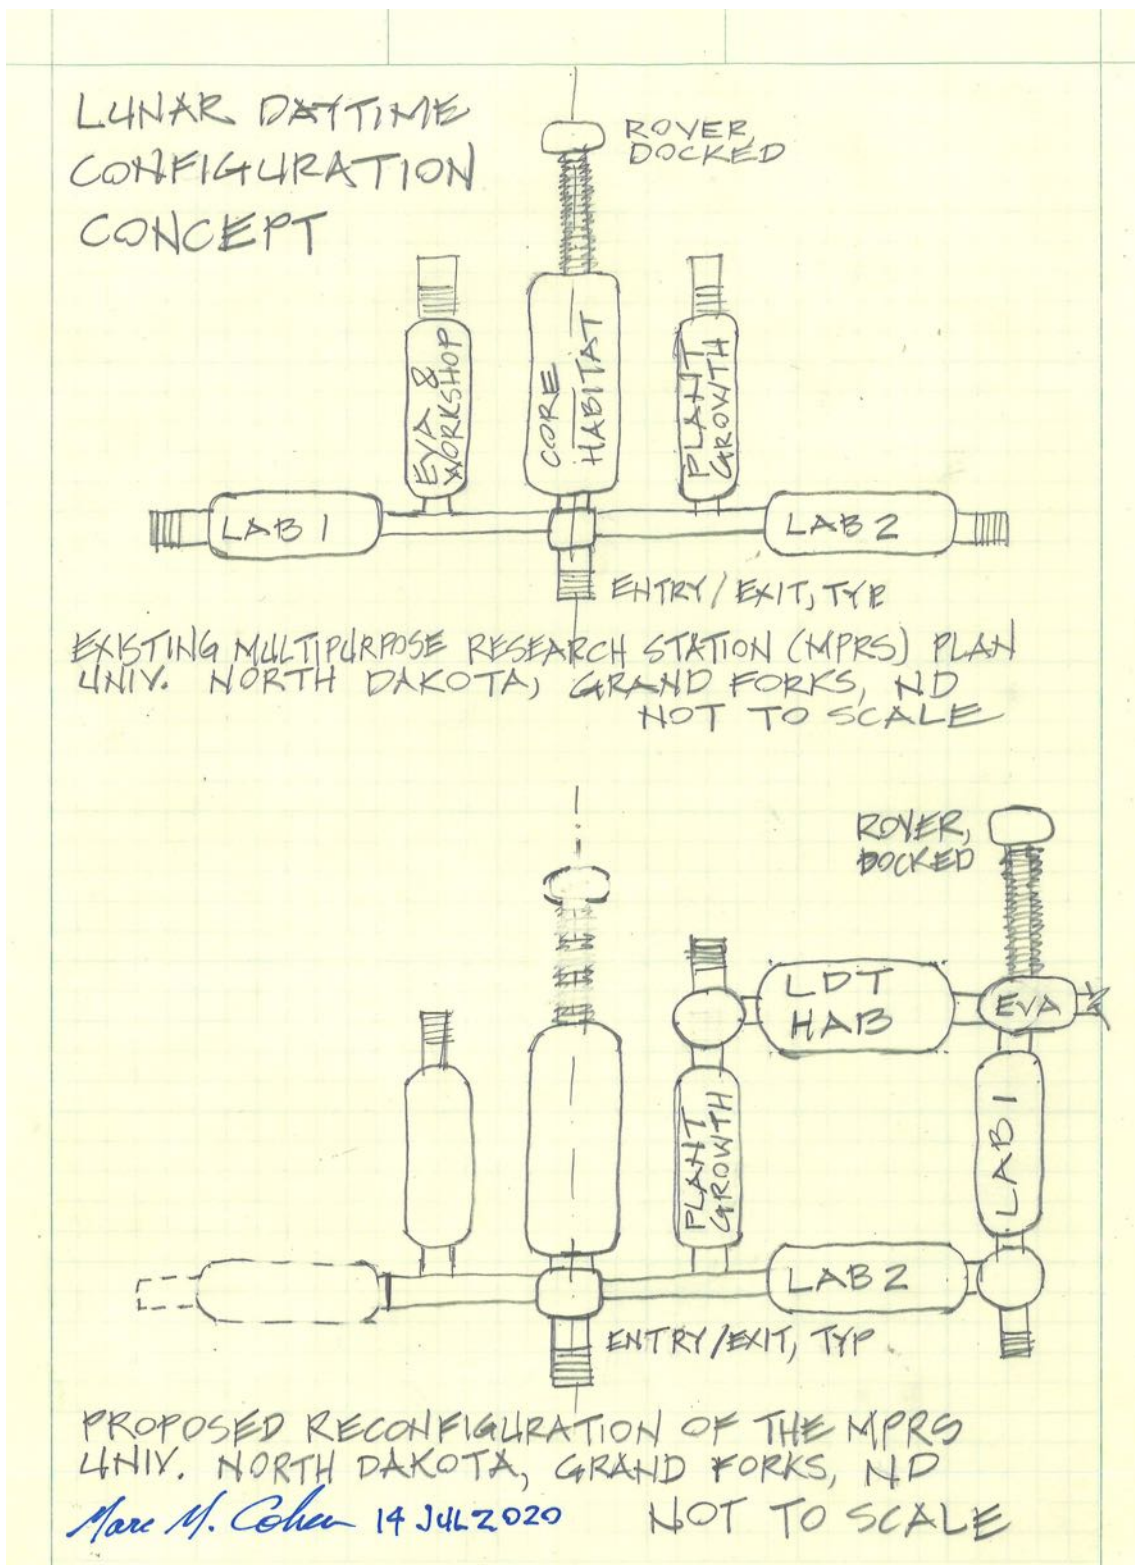 LUNAR DAYTIME
CONFIGURATION
CONCEPT
ROVER,
DOCKED
EVA &
WORKSHOP
CORE
HABITAT
PLANT
GROWTH
LAB 1
LAB 2
ENTRY/EXIT, TYP
EXISTING MULTIPURPOSE RESEARCH STATION (MPRS) PLAN
UNIV. NORTH DAKOTA, GRAND FORKS, ND
NOT TO SCALE
ROVER,
DOCKED
LDT
HAB
EVA
PLANT
GROWTH
LAB 1
LAB 2
ENTRY/EXIT, TYP
PROPOSED RECONFIGURATION OF THE MPRS
UNIV. NORTH DAKOTA, GRAND FORKS, ND
Marc M. Cohen 14 JUL 2020 NOT TO SCALE